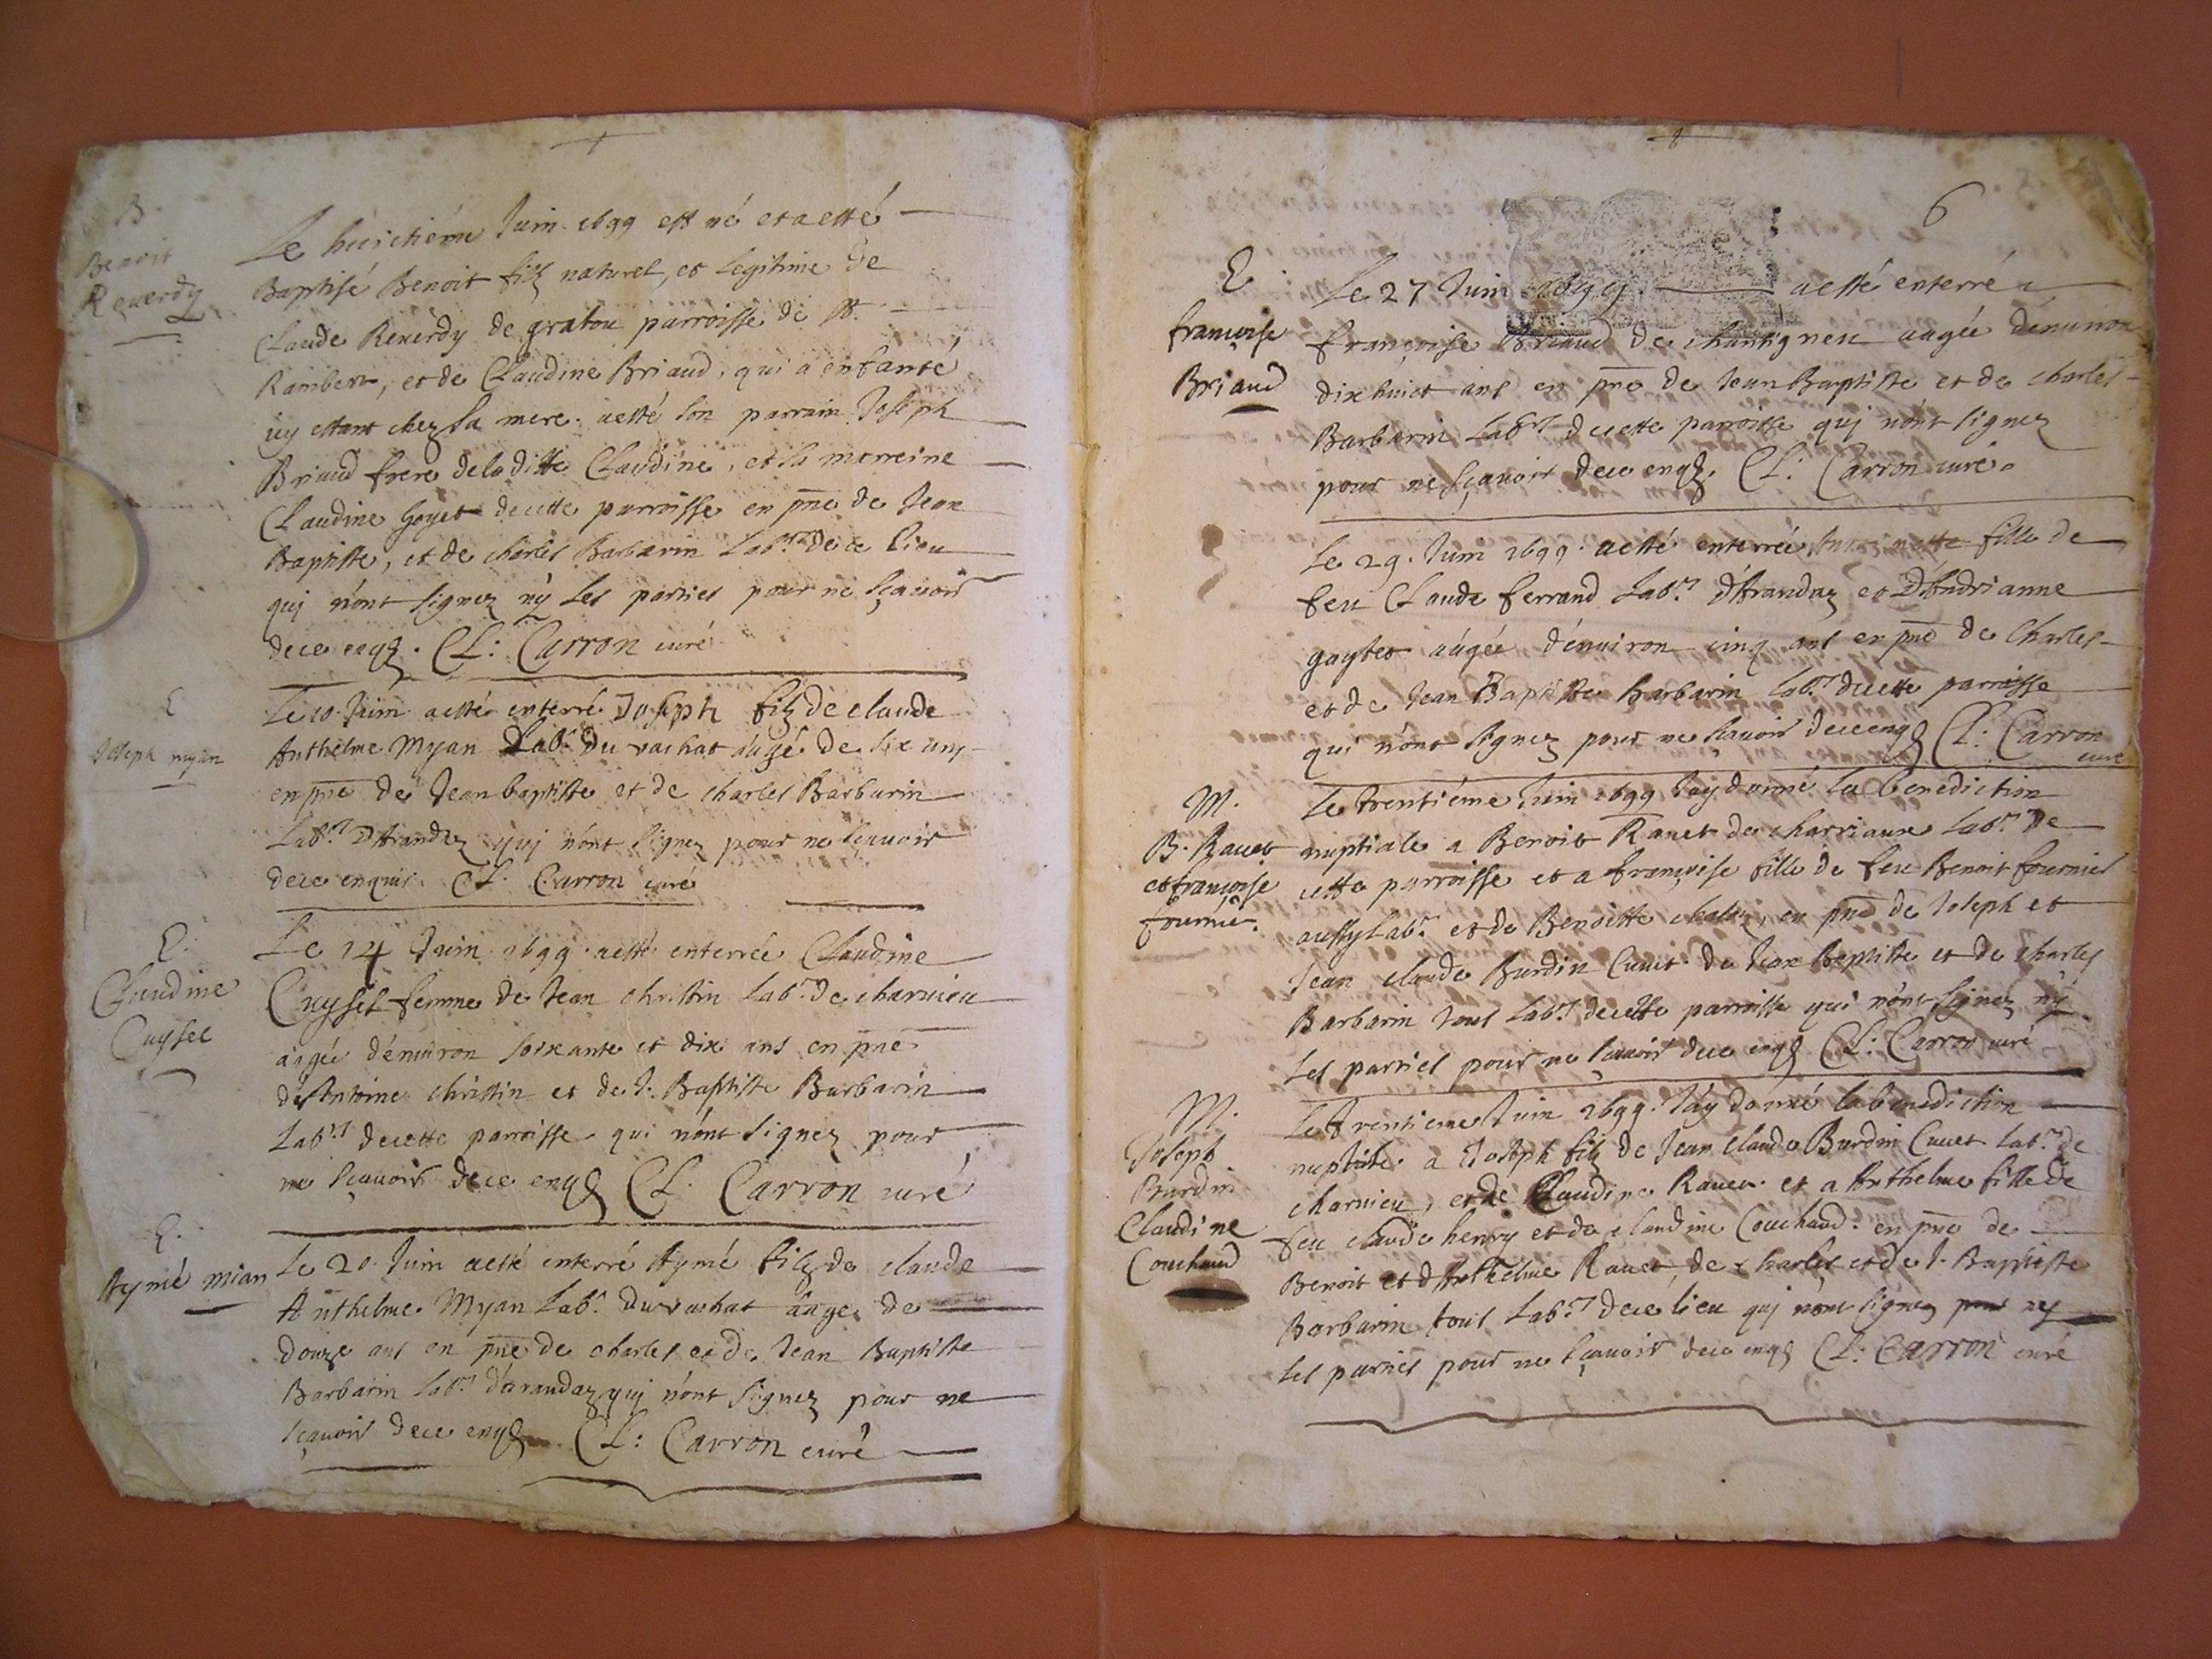 B.
Benoit
Reuerdy
Le huictiéme Juin 1699 est né et a esté
Baptisé Benoit filz naturel, et legitime de
Claude Reuerdy de gratou parroisse de St.
Rambert, et de Claudine Briaud, qui a enfanté
icy estant chez sa mere. a esté son parrain Joseph
Briaud frere de laditte Claudine, et sa marreine
Claudine Goyet de cette parroisse en pnce de Jean
Baptiste, et de charles Barbarin Labrs de ce lieu
quj n'ont signez ny les parties pour ne sçauoir
de ce enqs. Cl: Carron curé
E
Joseph myan
Le 10. Juin a esté enterré Joseph filz de claude
Anthelme Myan Labr. du vachat aagé de six ans
en pnce de Jean baptiste et de charles Barbarin
Labrs D'Arandaz quj n'ont signez pour ne sçauoir
de ce enquis. Cl. Carron curé
E.
Claudine
Cuyset
Le 14 Juin 1699 a esté enterrée Claudine
Cuyset femme de Jean christin Labr. de charuieu
aagée d'enuiron soixante et dix ans en pnce
d'Antoine christin et de J. Baptiste Barbarin
Labrs de cette parroisse qui n'ont signez pour
ne sçauoir de ce enqs Cl. Carron curé
E.
Aymé mian
Le 20. Juin a esté enterré Aymé filz de claude
Anthelme Myan Labr. du vachat aagé de
douze ans en pnce de charles et de Jean Baptiste
Barbarin Labrs d'arandaz quj n'ont signez pour ne
sçauoir de ce enqs Cl: Carron curé
6
E
françoise
Briaud
Le 27 Juin 1699 a esté enterré
françoise Briaud de chantigneu aagée d'enuiron
dix huict ans en pnce de Jean Baptiste et de charles
Barbarin Labrs de cette parroisse quj n'ont signez
pour ne sçauoir de ce enqs. Cl: Carron curé
Le 29. Juin 1699. a esté enterrée fille de
feu Claude ferrand Labr. D'Arandaz et D'Andrianne
gaytet aagée d'enuiron cinq ans en pnce de Charles
et de Jean Baptiste barbarin Labrs de cette parroisse
qui n'ont signez pour ne sçauoir de ce enqs Cl: Carron
curé
M.
B. Rauet
et françoise
fournier.
Le trentiéme Juin 1699 J'ay donné la benediction
nuptiale a Benoit Rauet de charriaux Labr. De
cette parroisse et a françoise fille de feu Benoit fournier
aussy Labr. et de Benoitte chalay, en pnce de Joseph et
Jean claude Burdin Cuuet de Jean Baptiste et de charles
Barbarin tous Labrs de cette parroisse qui n'ont signez ny
les parties pour ne sçauoir de ce enqs Cl: Carron curé
M.
Joseph
Burdin
Claudine
Couchaud
Le trentieme Juin 1699. J'ay donné la benediction
nuptiale a Joseph filz de Jean claude Burdin Cuuet Labr. de
charuieu, et de Claudine Rauet et a Anthelme fille de
feu claude henry et de claudine Couchaud. en pnce de
Benoit et d'Anthelme Rauet, de charles et de J. Baptiste
Barbarin tous Labrs de ce lieu quj n'ont signez pour ny
les parties pour ne sçauoir de ce enqs Cl: Carron curé